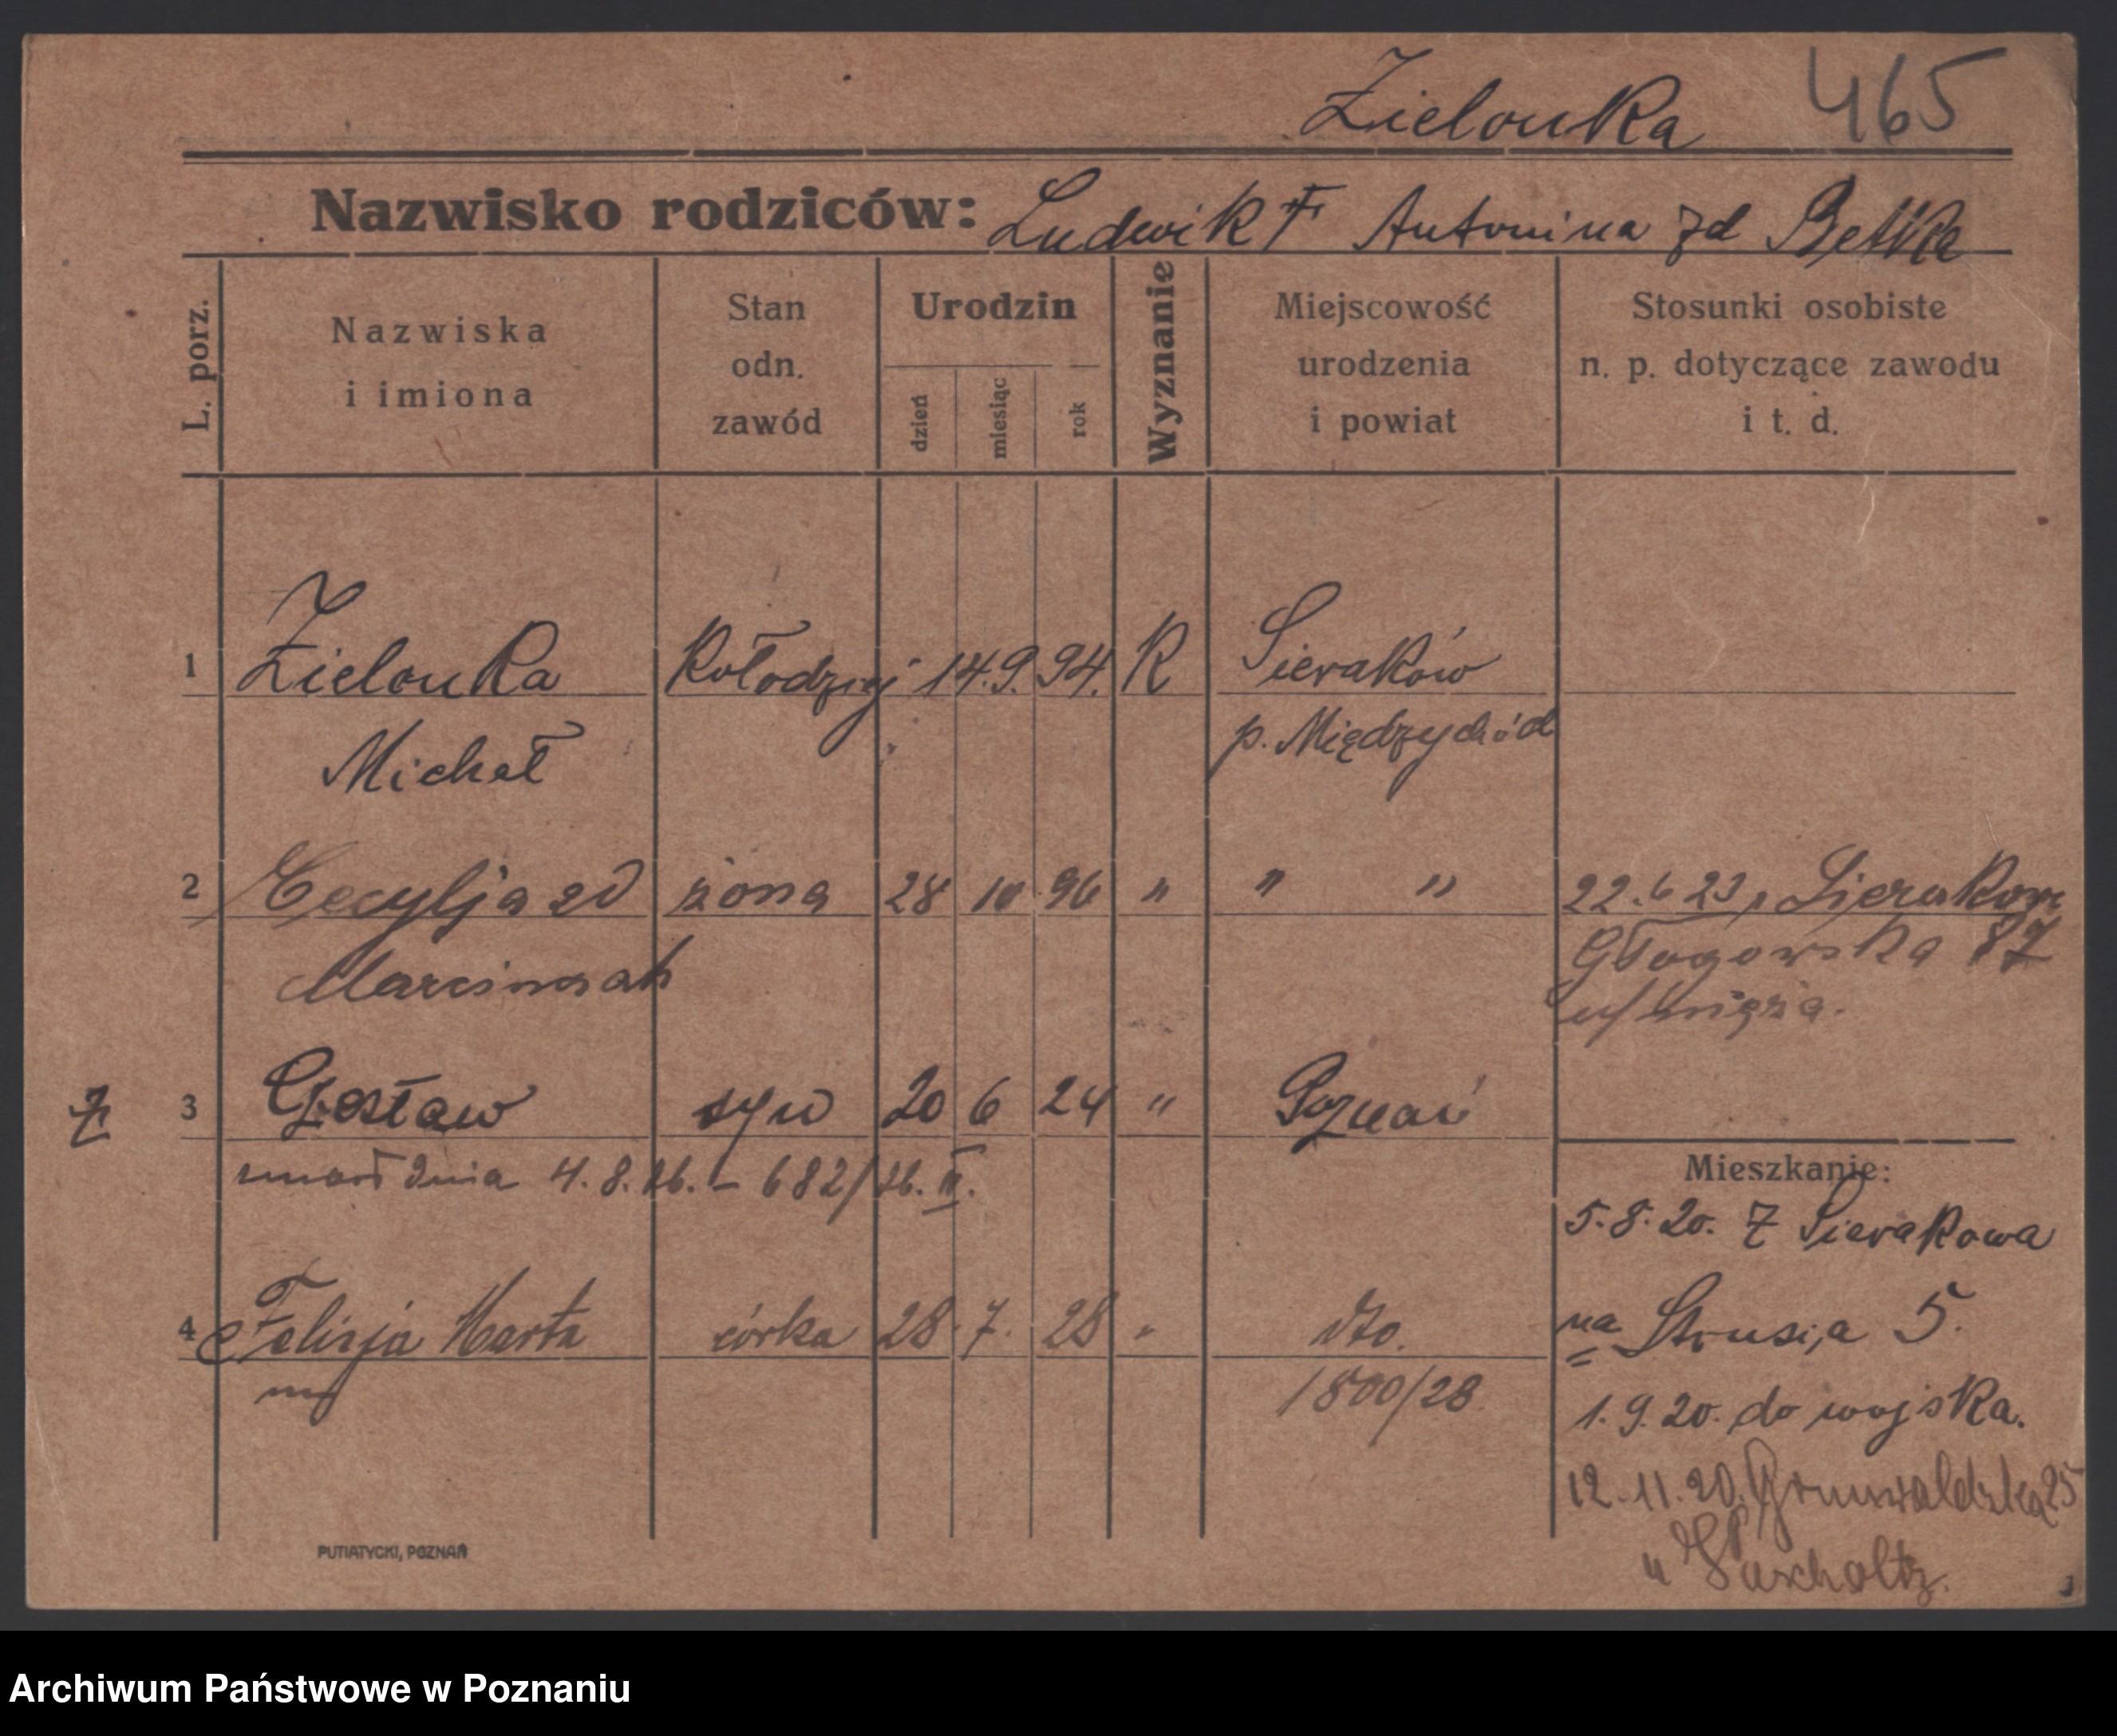 Zielonka 465
Nazwisko rodziców: Ludwik † Antonina zd Betka
L. porz.
Nazwiska i imiona
Stan odn. zawód
Urodzin
dzień miesiąc rok
Wyznanie
Miejscowość urodzenia i powiat
Stosunki osobiste n. p. dotyczące zawodu i t. d.
1 Zielonka Kołodziej 14. 9. 94. K Sieraków
Michał p. Międzychód
2 Cecylja zd żona 28 10 96 " " " 22.6 23, Sierakow
Marciniak Głogowska 87
u/ męża.
3 Czesław syn 20 6 24 " Poznań
zmarł dnia 4. 8. 26. – 682/26. II.
Mieszkanie:
5. 8. 20. Z Sierakowa
4 Felicja Marta córka 28. 7. 28 " dto. na Strusia 5.
1800/28 1. 9. 20. do wojska.
12. 11. 20. Grunwaldzka 25
u
PUTIATYCKI, POZNAŃ
Archiwum Państwowe w Poznaniu